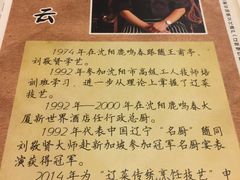 云
1974年在沈阳鹿鸣春跟随王甫亭、
刘敬贤学艺。
1992年参加沈阳市高级工人技师培
训班学习，进一步从理论上掌握了辽菜
技艺。
1992年—2000年在沈阳鹿鸣春大
厦新世界酒店任行政总厨。
1992年代表中国辽宁“名厨”随同
刘敬贤大师赴新加坡参加冠军名厨宴表
演获得冠军。
2014年为“辽菜传统烹饪技艺”中